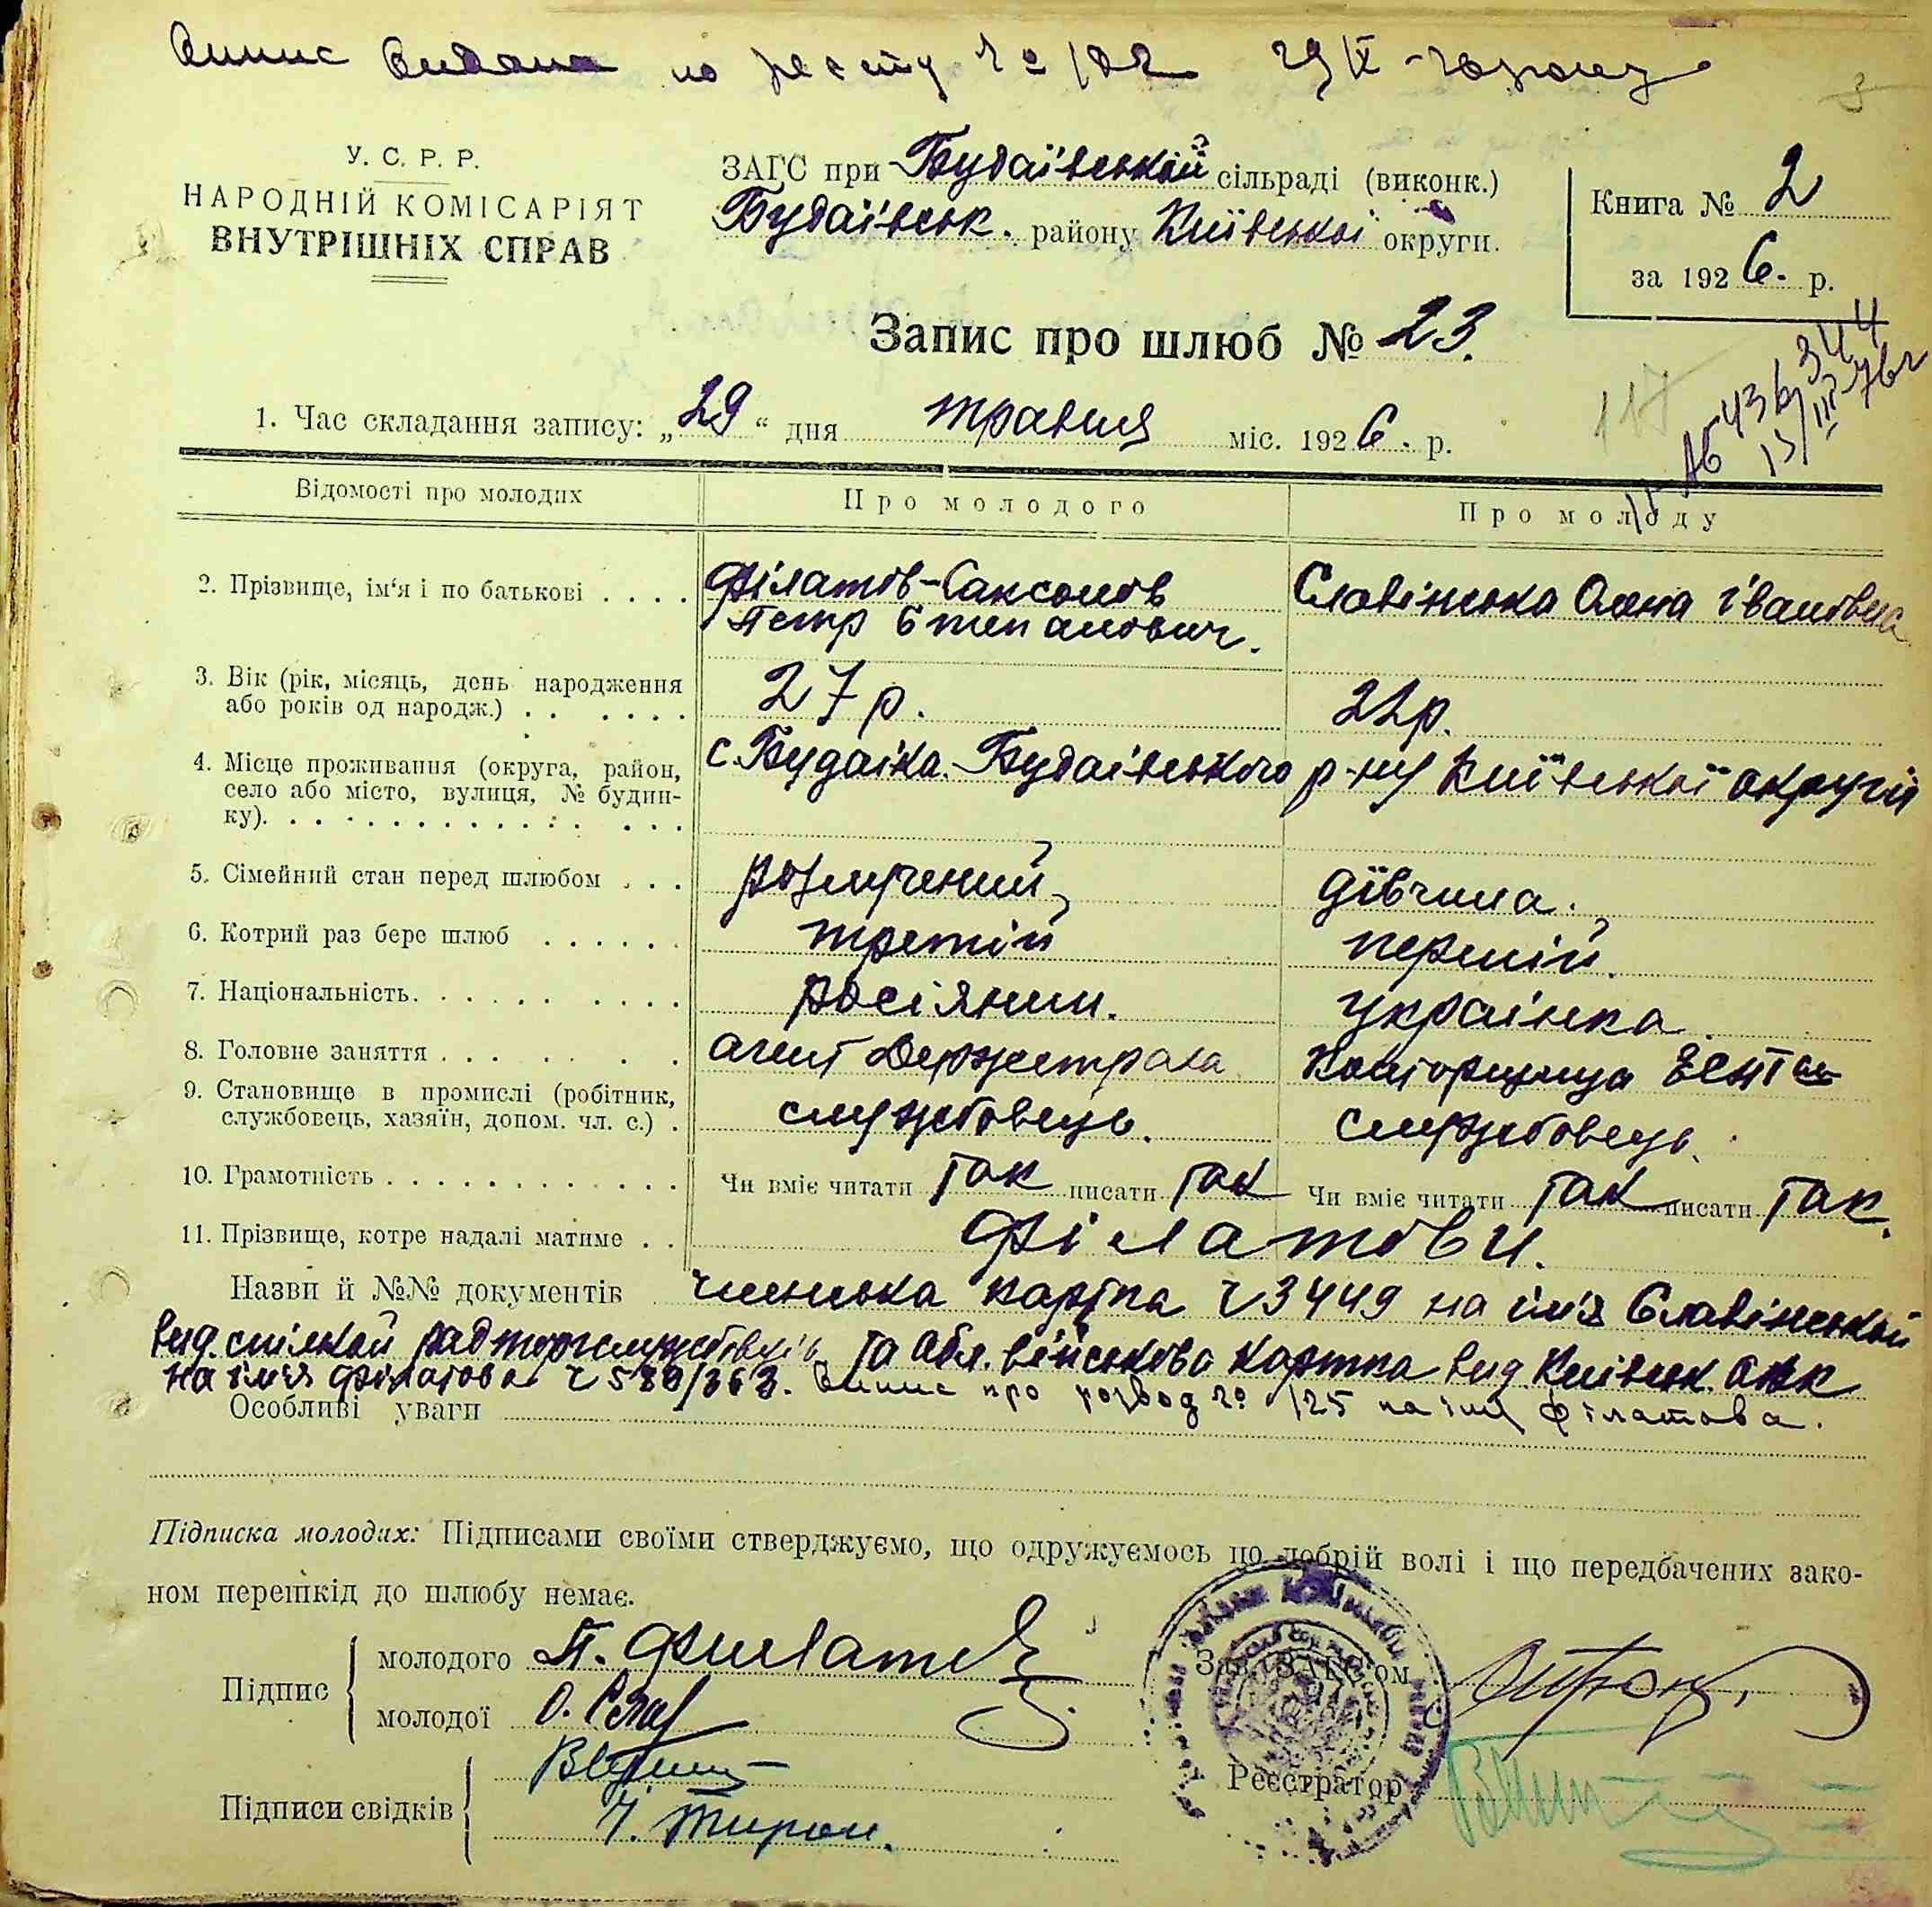 по реєстру №
У. С. Р. Р.
НАРОДНІЙ КОМІСАРІЯТ
ВНУТРІШНІХ СПРАВ
ЗАГС при Будаївській сільраді (виконк.)
Будаївськ. району Київської округи.
Книга № 2
за 1926. р.
Запис про шлюб № 23.
117
АБ 436344
13/III-76г
1. Час складання запису: „29“ дня травня міс. 1926. р.
Відомості про молодих
Про молодого
Про молоду
2. Прізвище, ім'я і по батькові . . . .
Філатів-Саксонов
Петр Степанович.
Славінська Олена Івановна
3. Вік (рік, місяць, день народження
або років од народж.) . . . . . .
27 р.
22р.
4. Місце проживання (округа, район,
село або місто, вулиця, № будин-
ку). . . . . . . . . . . . . . . .
с. Будаїка. Будаівського р-ну Київської округи
5. Сімейний стан перед шлюбом . . .
розлучений
дївчина.
6. Котрий раз бере шлюб . . . . . .
третій
перший.
7. Національність. . . . . . . . . .
росіянин.
українка
8. Головне заняття . . . . . . .
агент Держстраха
Конторщица
9. Становище в промислі (робітник,
службовець, хазяїн, допом. чл. с.) .
службовець.
службовець.
10. Грамотність . . . . . . . . . . . .
Чи вміє читати так писати так
Чи вміє читати так писати так.
11. Прізвище, котре надалі матиме . .
Філатови.
Назви й №№ документів членська картка ч 3449 на імя Славінської
вид. спілкой радторгслужбовців та Обл. військова картка вид Київськ. ОВК
на імя Філатова ч 580/363. Випис про розвод № 125 на імя Філатова.
Особливі уваги
Підписка молодих: Підписами своїми стверджуємо, що одружуємось по добрій волі і що передбачених зако-
ном перешкід до шлюбу немає.
Підпис
молодого П. Филатов
молодої О. Слав
Зав. ЗАГС'ом
Підписи свідків
Реєстратор